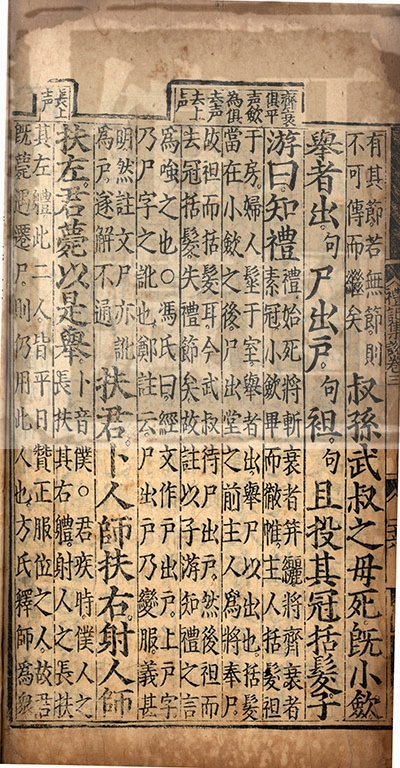 齊衰
俱平
声斂
為俱
去声
去上
声
長上
声
禮記集說卷三
有其節若無節則
不可傳而繼矣
叔孫武叔之母死既小斂
舉者出句尸出戶句袒句且投其冠括髮子
游曰知禮
禮始死將斬衰者笄纚將齊衰者
素冠小斂畢而徹帷主人括髮袒
于房婦人髽于室舉者出舉尸以出也括髮
當在小斂之後尸出堂之前主人為將奉尸
故袒而括髮耳今武叔待尸出戶然後袒而
去冠括髮失禮節矣故註以子游知禮之言
為嗤之也○馮氏曰經文作戶出戶上戶字
乃尸字之訛也鄭註云尸出戶乃變服義甚
明然註文尸亦訛
為戶遂解不通
扶君卜人師扶右射人師
扶左君薨以是舉
卜音僕○君疾時僕人之
長扶其右體射人之長扶
其左體此二人皆平日贊正服位之人故君
既薨遇遷尸則仍用此人也方氏釋師為眾